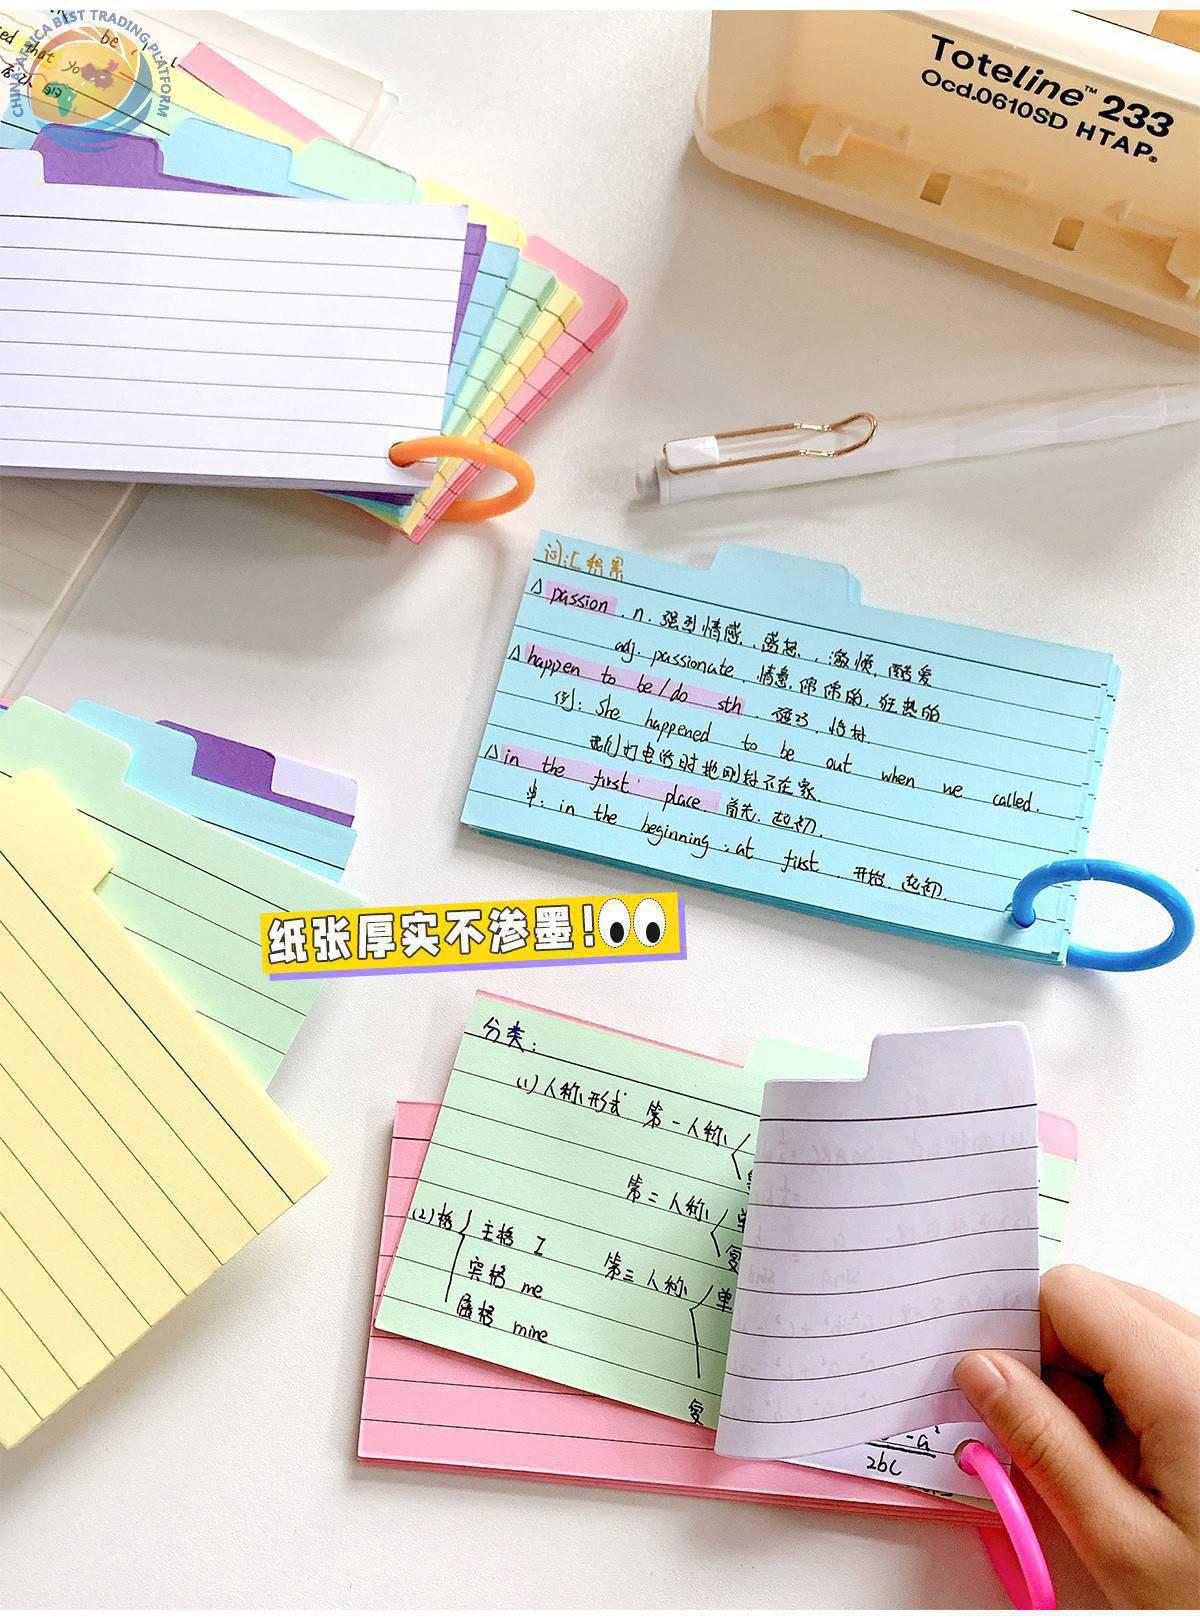 CHINA-AFRICA BEST TRADING PLATFORM
be
that yo
Toteline™ 233
Ocd.0610SD HTAP®
词汇积累
△ passion . n. 强烈情感、
adj. passionate, 狂热的
△ happen to be/do sth . 碰巧, 恰好.
例: She happened to be out when we called.
我们打电话时她刚好不在家.
△ in the first place. 首先. 起初.
in the beginning , at first . 开始. 起初.
纸张厚实不渗墨!
分类:
(1) 人称形式 第一人称
第二人称 单
复
(2) 格 主格 I 第三人称 单
宾格 me
属格 mine
复
-a²
2bc